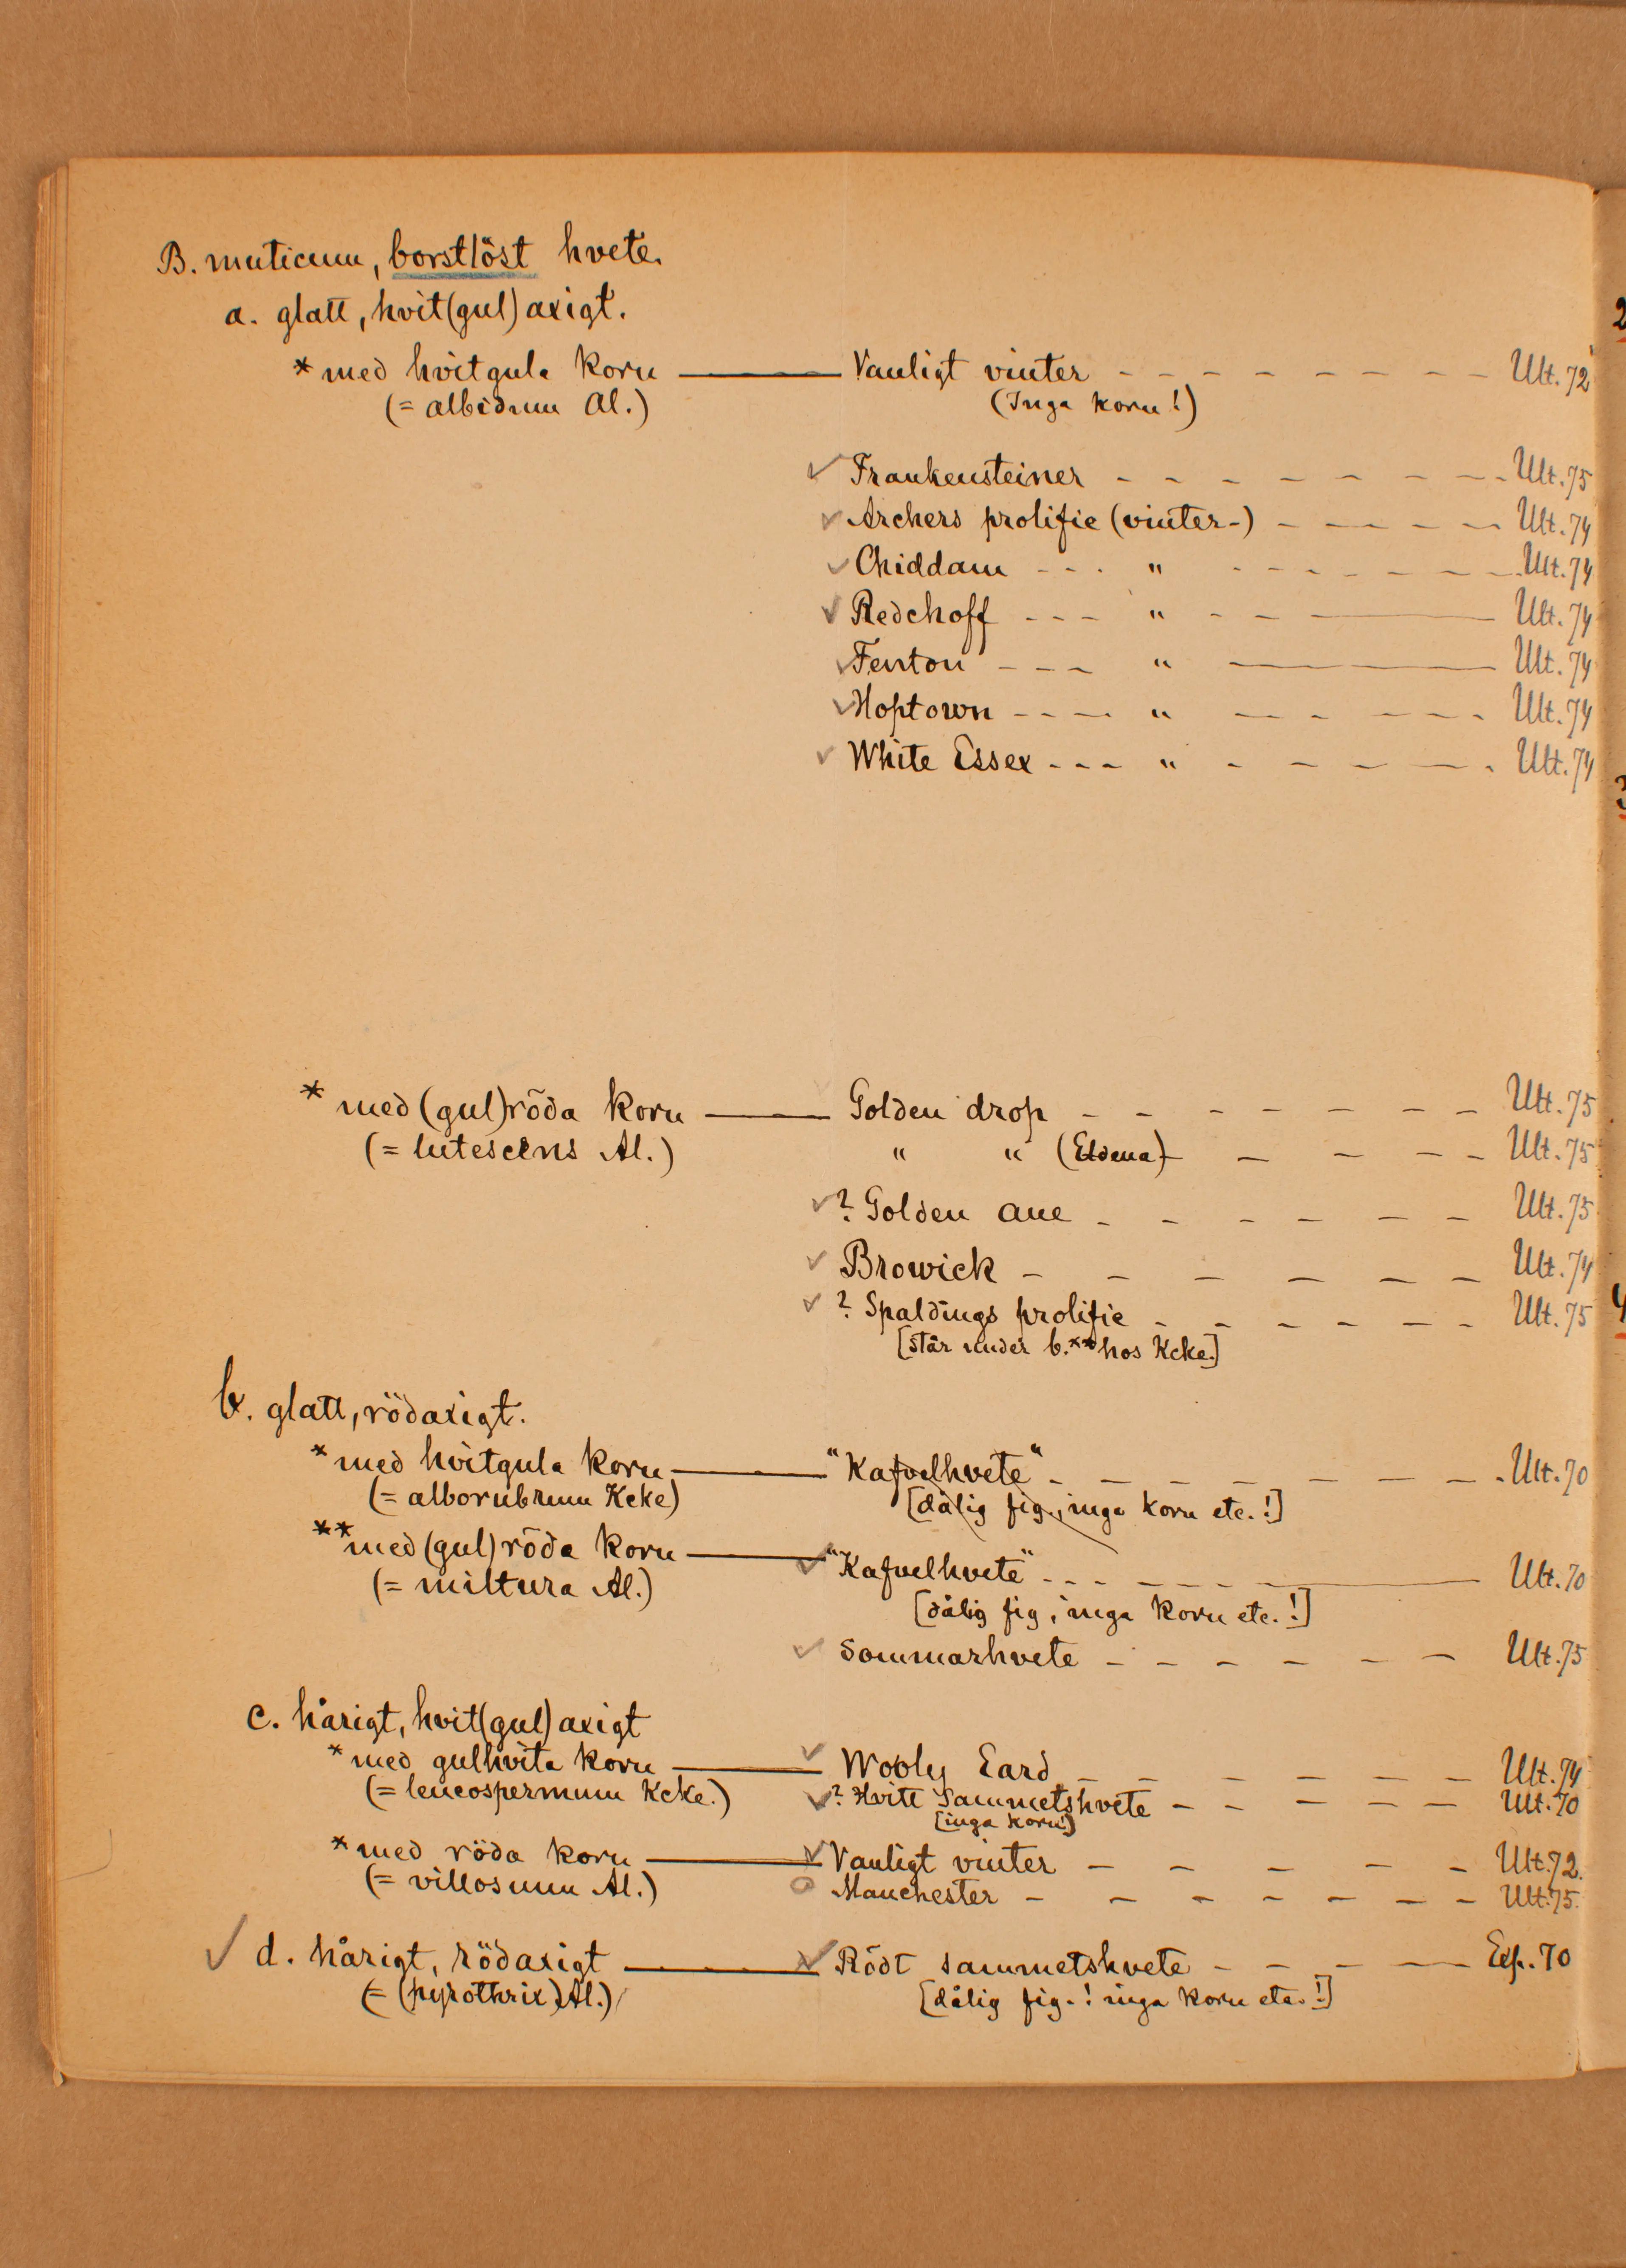 B. muticum, borstlöst hvete.
a. glatt, hvit(gul)axigt.
* med hvitgula korn ——— Vanligt vinter - - - - - - - - - Ult. 72
(= albidum Al.) (Inga korn!)
✓ Frankensteiner - - - - - - - - Ult. 75
✓ Archers prolific (vinter-) - - - - - Ult. 74
✓ Chiddam - - - " - - - - - - - Ult. 74
✓ Redchoff - - - " - - ——— Ult. 74
✓ Fenton - - - " ——— Ult. 74
✓ Hoptown - - - - " - - - - - - Ult. 74
✓ White Essex - - - " - - - - - - Ult. 74
* med (gul)röda korn ——— Golden drop - - - - - - - Ult. 75
(= lutescens Al.) " " (Eldena) - - - - - Ult. 75
✓ ? Golden aue - - - - - - Ult. 75
✓ Browick - - - - - - Ult. 74
✓ ? Spaldings prolific - - - - - - Ult. 75
[står under b.** hos Kcke.]
b. glatt, rödaxigt.
* med hvitgula korn ——— "Kafvelhvete" - - - - - - - - Ult. 70
(= alborubrum Kcke) [dålig fig., inga korn etc.!]
** med (gul)röda korn ——— ✓ "Kafvelhvete" - - - - - - ——— Ult. 70
(= miltura Al.) [dålig fig, inga korn etc.!]
✓ Sommarhvete - - - - - - Ult. 75
c. hårigt, hvit(gul)axigt
* med gulhvita korn ——— ✓ Wooly Eard - - - - - - Ult. 74
(= leucospermum Kcke.) ✓ ? Hvitt Sammetshvete - - - - - Ult. 70
[inga korn!]
* med röda korn ——— ✓ Vanligt vinter - - - - - Ult. 72.
(= villosum Al.) o Manchester - - - - - - - Ult. 75.
✓ d. hårigt, rödaxigt ——— ✓ Rödt sammetshvete - - - — Exp. 70
(= (pyrothrix) Al.) [dålig fig.! inga korn etc.!]